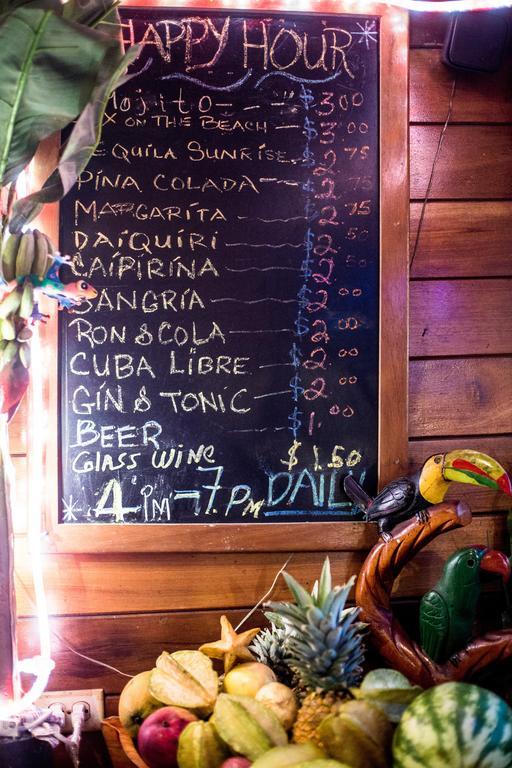 HAPPY HOUR
Mojito $3.00
X ON THE BEACH $3.00
EQUILA SUNRISE $2.75
PIÑA COLADA $2.75
MARGARITA $2.75
DAIQUIRI $2.50
CAIPIRINA $2.50
SANGRIA $2.00
RON & COLA $2.00
CUBA LIBRE $2.00
GIN & TONIC $2.00
BEER $1.00
GLASS WINE $1.50
4 PM - 7 PM DAIL